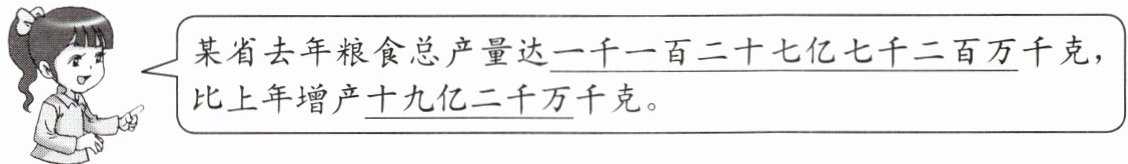 某省去年粮食总产量达一千一百二十七亿七千二百万千克，
比上年增产十九亿二千万千克。